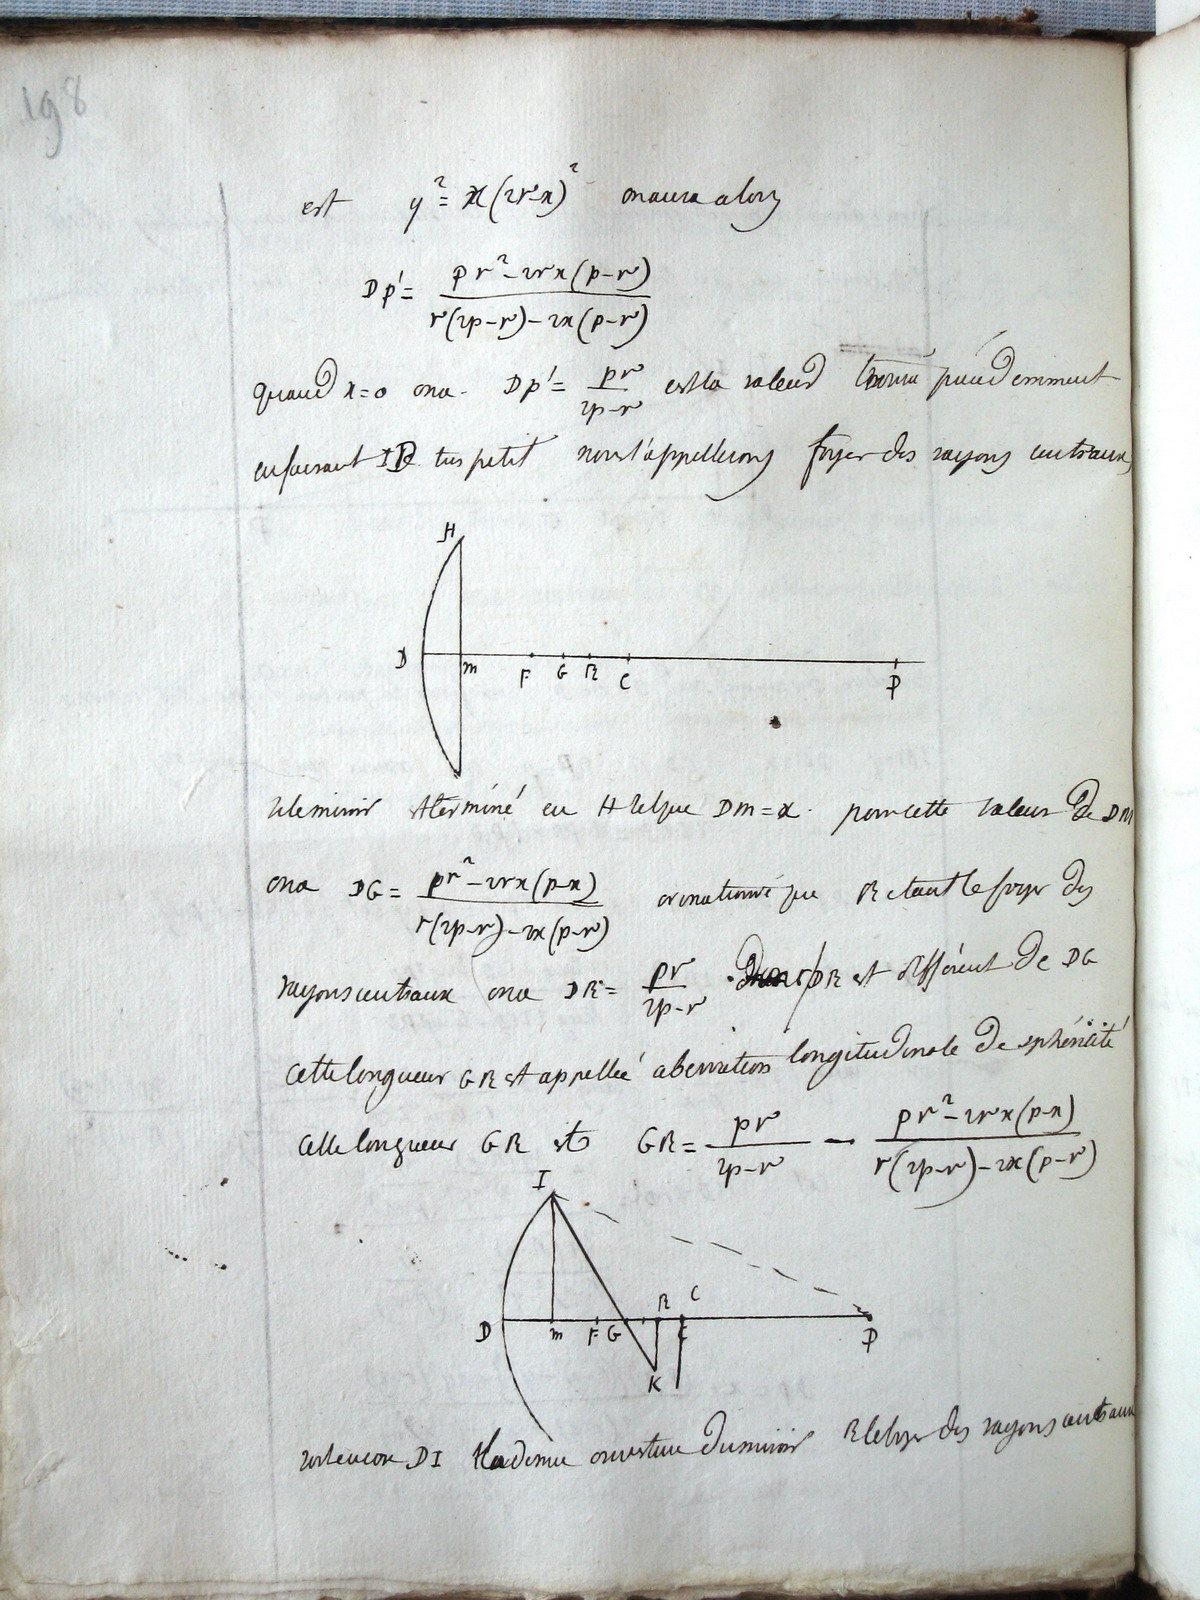 198
est y² = x(2r-x)² on aura alors
Dp' = pr² - 2rx(p-r) / r(2p-r) - 2x(p-r)
quand x=0 on a Dp' = pr / 2p-r est la valeur trouvé précédemment
en faisant ID très petit nous l'appellerons foyer des rayons centraux
H
D m F G R C P
le miroir terminé en H tel que Dm = x. pour cette valeur de DM
on a DG = pr² - 2rx(p-x) / r(2p-r) - 2x(p-r) or on a trouvé que R étant le foyer des
rayons centraux on a DR = pr / 2p-r DR est différent de DG
Cette longueur GR est appellée aberration longitudinale de sphéricité
Cette longueur GR est GR = pr / 2p-r - pr² - 2rx(p-x) / r(2p-r) - 2x(p-r)
I
R C
D m F G E P
K
soit encore DI la demie ouverture du miroir R le foyer des rayons centraux